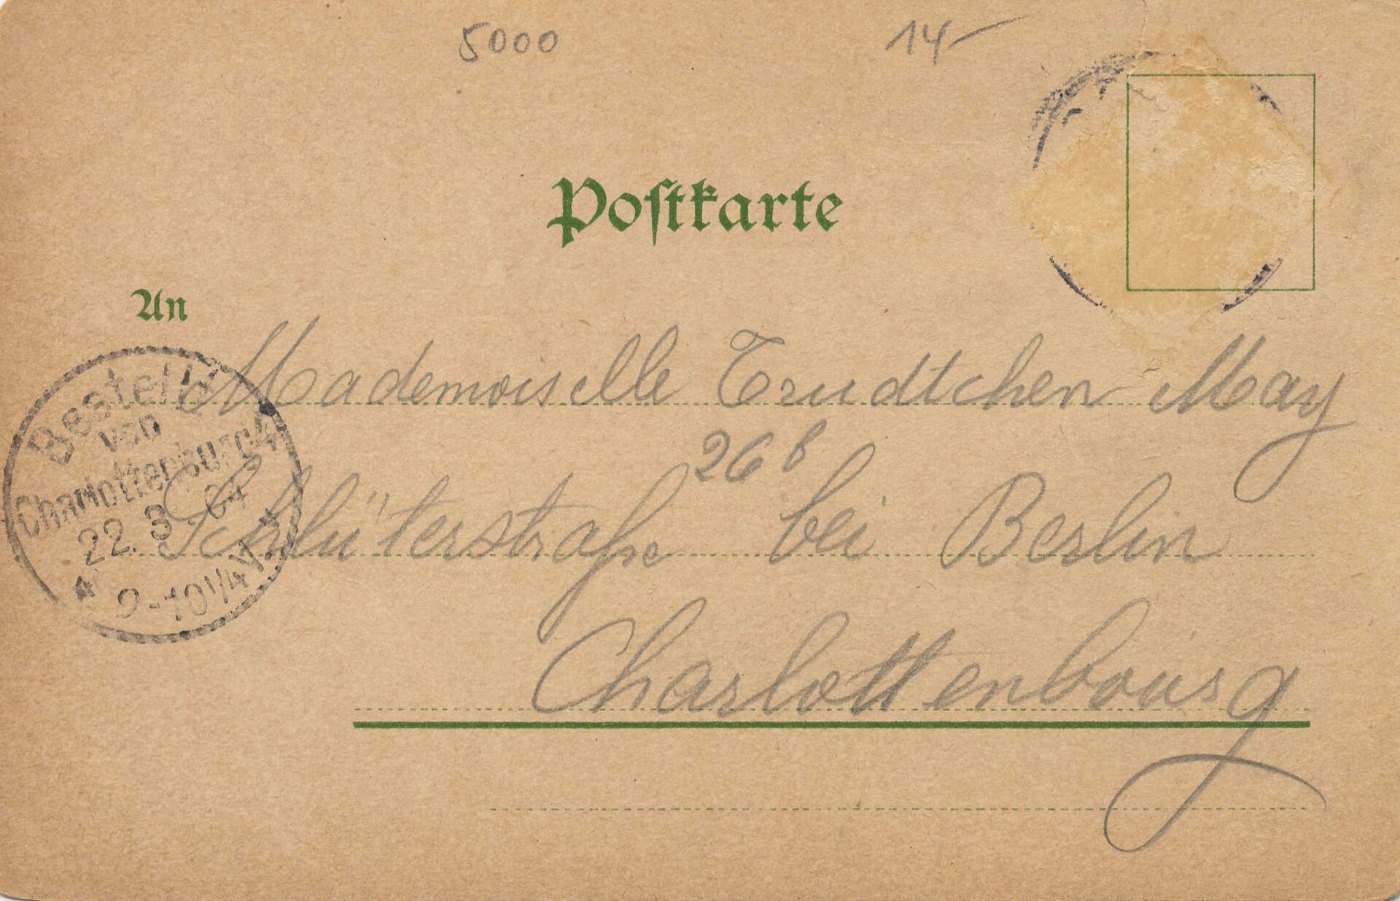 5000 14-
Postkarte
An
Mademoiselle Trudtchen May
26 b
Schlüterstraße bei Berlin
Charlottenbourg
Bestellt
von
Charlottenburg 4
22. 3. 04
9-10 1/4 V.